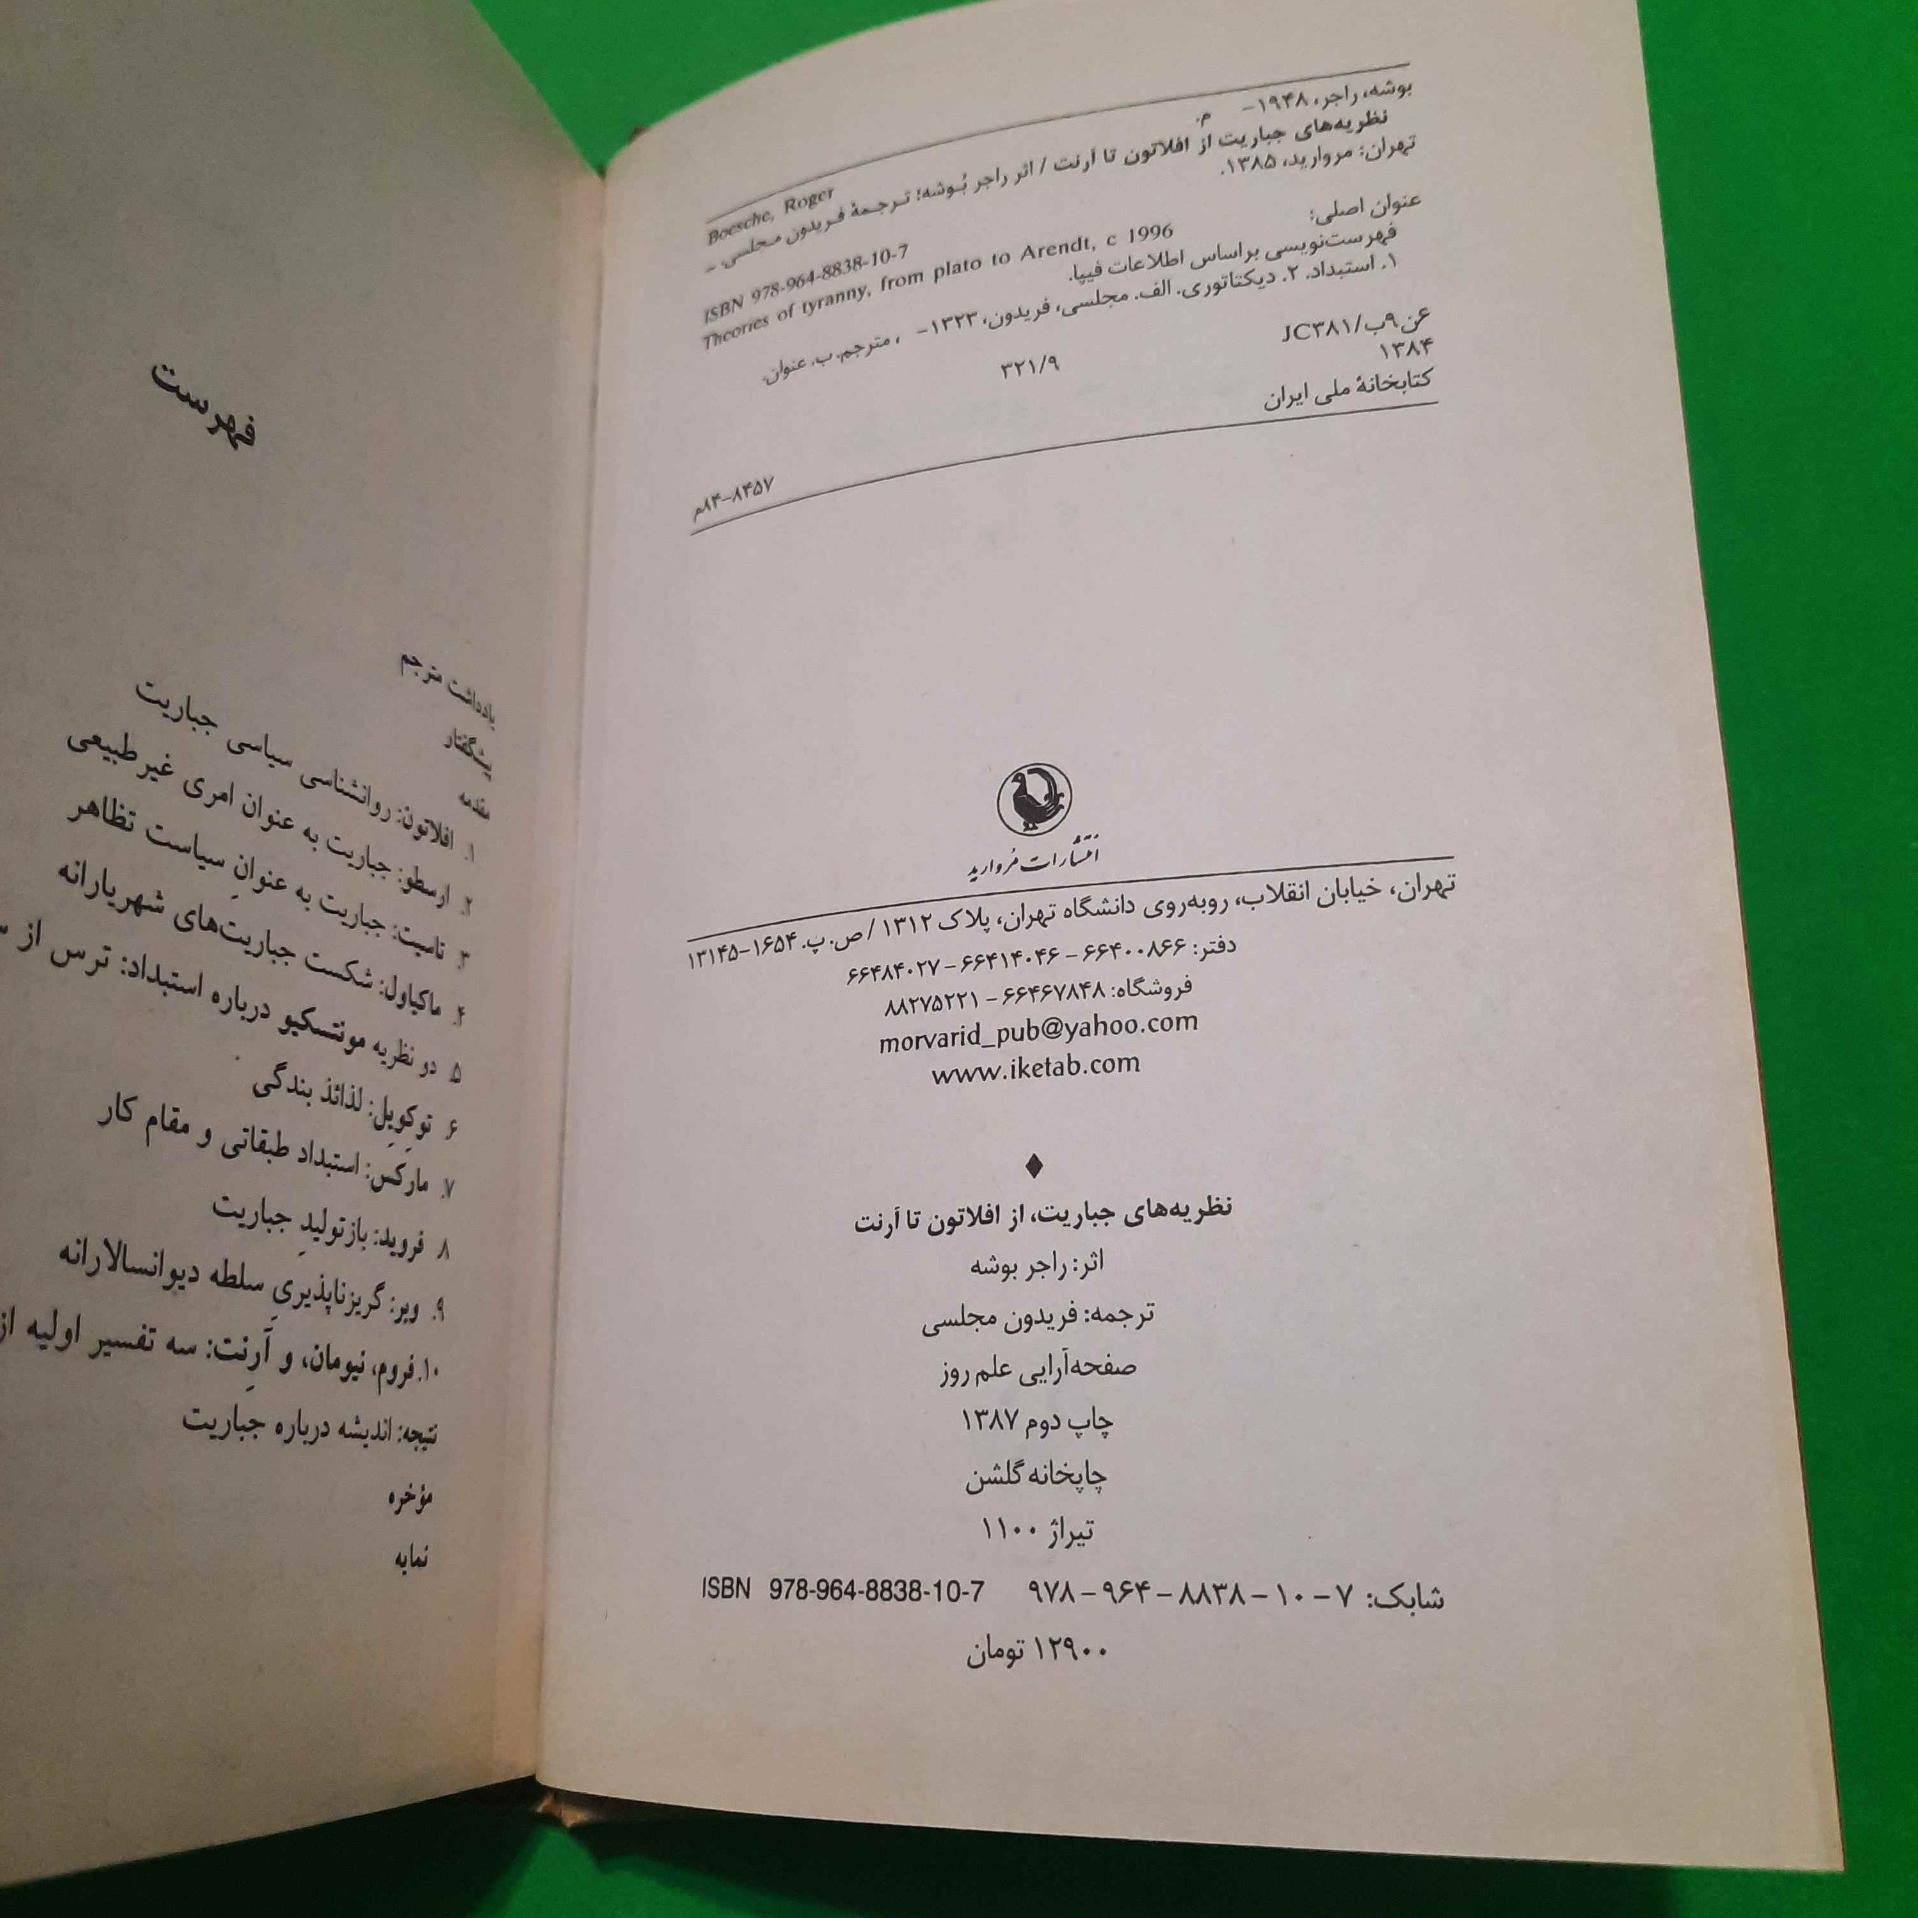 بوشه، راجر، ۱۹۴۸- م.
Boesche, Roger
نظریه‌های جباریت از افلاتون تا آرنت / اثر راجر بُوشه؛ ترجمهٔ فریدون مجلسی. –
تهران: مروارید، ۱۳۸۵.
ISBN 978-964-8838-10-7
عنوان اصلی: Theories of tyranny, from plato to Arendt, c 1996
فهرست‌نویسی براساس اطلاعات فیپا.
۱. استبداد. ۲. دیکتاتوری. الف. مجلسی، فریدون، ۱۳۲۳- ، مترجم. ب. عنوان.
۳۲۱/۹ JC۳۸۱/ب۹
۱۳۸۴
کتابخانهٔ ملی ایران
م۸۴-۸۴۵۷
انتشارات مروارید
تهران، خیابان انقلاب، روبه‌روی دانشگاه تهران، پلاک ۱۳۱۲ / ص. پ. ۱۶۵۴-۱۳۱۴۵
دفتر: ۶۶۴۰۰۸۶۶ - ۶۶۴۱۴۰۴۶ - ۶۶۴۸۴۰۲۷
فروشگاه: ۶۶۴۶۷۸۴۸ - ۸۸۲۷۵۲۲۱
morvarid_pub@yahoo.com
www.iketab.com
نظریه‌های جباریت، از افلاتون تا آرنت
اثر: راجر بوشه
ترجمه: فریدون مجلسی
صفحه‌آرایی علم روز
چاپ دوم ۱۳۸۷
چاپخانه گلشن
تیراژ ۱۱۰۰
شابک: ۷ - ۱۰ - ۸۸۳۸ - ۹۶۴ - ۹۷۸ ISBN 978-964-8838-10-7
۱۲۹۰۰ تومان
فهرست
یادداشت مترجم
پیشگفتار
مقدمه
۱. افلاتون: روانشناسی سیاسی جباریت
۲. ارسطو: جباریت به عنوان امری غیرطبیعی
۳. تاسیت: جباریت به عنوانِ سیاست تظاهر
۴. ماکیاول: شکست جباریت‌های شهریارانه
۵. دو نظریه مونتسکیو درباره استبداد: ترس از
۶. توکِویل: لذائذ بندگی
۷. مارکس: استبداد طبقاتی و مقام کار
۸. فروید: بازتولیدِ جباریت
۹. وبر: گریزناپذیریِ سلطه دیوانسالارانه
۱۰. فروم، نیومان، و آرِنت: سه تفسیر اولیه از
نتیجه: اندیشه درباره جباریت
مؤخره
نمایه